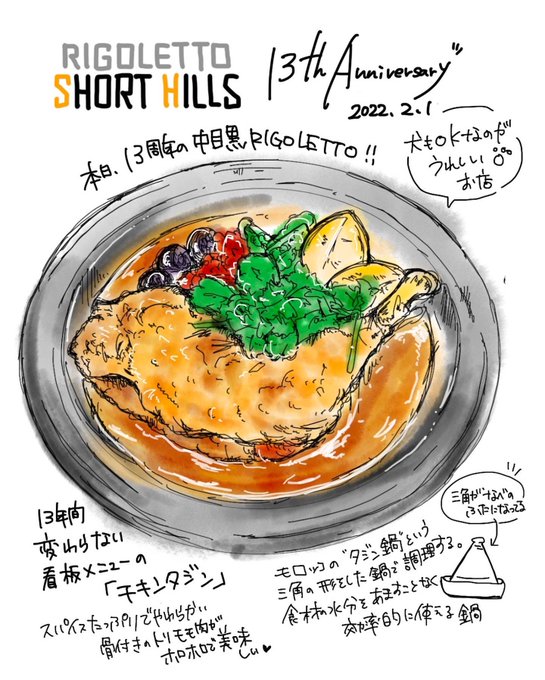 RIGOLETTO
SHORT HILLS
13th Anniversary
2022.2.1
犬もOKなのが
うれしい
お店
本日、13周年の中目黒RIGOLETTO!!
13年間
変わらない
看板メニューの
「チキンタジン」
スパイスたっぷりでやわらかい
骨付きのトリモモ肉が
ホロホロで美味
しい♥
三角がなべの
ふたになってる
モロッコの"タジン鍋"という
三角の形をした鍋で調理する。
食材の水分をあますことなく
効率的に使える鍋